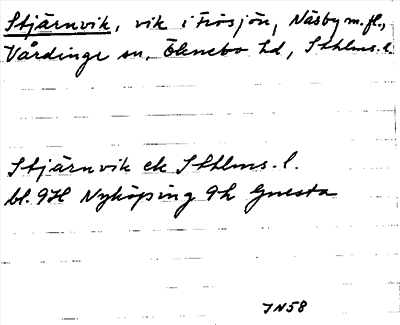 Stjärnvik, vik i Frösjön, Näsby m.fl.,
Vårdinge sn, Öknebo hd, Sthlms. l.
Stjärnvik ek Sthlms. l.
bl. 9H Nyköping 9h Gnesta
JN58